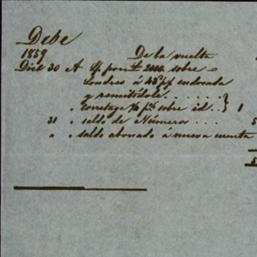 Debe
1859 De la vuelta
Dbre 30 A £ por £ 2000 sobre
Londres á 48 3/4 endosada
y remitídole
" corretage % pto sobre id. } 1
31 " saldo de Números . . . 5
" " saldo abonado á nueva cuenta